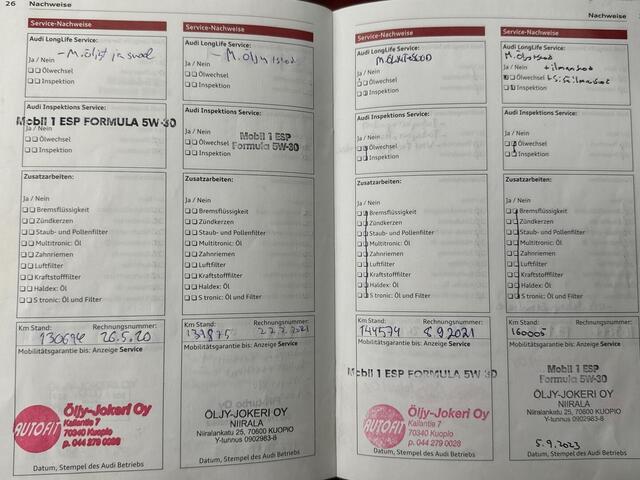 26 Nachweise
Service-Nachweise
Audi LongLife Service:
- M.öljyt ja suod
Ja / Nein
Ölwechsel
Inspektion
Audi Inspektions Service:
Mobil 1 ESP FORMULA 5W-30
Ja / Nein
Ölwechsel
Inspektion
Zusatzarbeiten:
Ja / Nein
Bremsflüssigkeit
Zündkerzen
Staub- und Pollenfilter
Multitronic: Öl
Zahnriemen
Luftfilter
Kraftstofffilter
Haldex: Öl
S tronic: Öl und Filter
Km Stand: Rechnungsnummer:
26.5.20
Mobilitätsgarantie bis: Anzeige Service
AUTOFIT
Öljy-Jokeri Oy
Kallantie 7
70340 Kuopio
p. 044 279 0028
Datum, Stempel des Audi Betriebs
Service-Nachweise
Audi LongLife Service:
Ja / Nein
Ölwechsel
Inspektion
Audi Inspektions Service:
Mobil 1 ESP
Formula 5W-30
Ja / Nein
Ölwechsel
Inspektion
Zusatzarbeiten:
Ja / Nein
Bremsflüssigkeit
Zündkerzen
Staub- und Pollenfilter
Multitronic: Öl
Zahnriemen
Luftfilter
Kraftstofffilter
Haldex: Öl
S tronic: Öl und Filter
Km Stand: Rechnungsnummer:
137875
Mobilitätsgarantie bis: Anzeige Service
ÖLJY-JOKERI OY
NIIRALA
Niiralankatu 25, 70600 KUOPIO
Y-tunnus 0902983-8
Datum, Stempel des Audi Betriebs
Nachweise
Service-Nachweise
Audi LongLife Service:
Ja / Nein
Ölwechsel
Inspektion
Audi Inspektions Service:
Ja / Nein
Ölwechsel
Inspektion
Zusatzarbeiten:
Ja / Nein
Bremsflüssigkeit
Zündkerzen
Staub- und Pollenfilter
Multitronic: Öl
Zahnriemen
Luftfilter
Kraftstofffilter
Haldex: Öl
S tronic: Öl und Filter
Km Stand: Rechnungsnummer:
144574 8.9.2021
Mobilitätsgarantie bis: Anzeige Service
Mobil 1 ESP FORMULA 5W-30
AUTOFIT
Öljy-Jokeri Oy
Kallantie 7
70340 Kuopio
p. 044 279 0028
Datum, Stempel des Audi Betriebs
Service-Nachweise
Audi LongLife Service:
Ja / Nein
Ölwechsel
Inspektion
Audi Inspektions Service:
Ja / Nein
Ölwechsel
Inspektion
Zusatzarbeiten:
Ja / Nein
Bremsflüssigkeit
Zündkerzen
Staub- und Pollenfilter
Multitronic: Öl
Zahnriemen
Luftfilter
Kraftstofffilter
Haldex: Öl
S tronic: Öl und Filter
Km Stand: Rechnungsnummer:
160005
Mobilitätsgarantie bis: Anzeige Service
Mobil 1 ESP
Formula 5W-30
ÖLJY-JOKERI OY
NIIRALA
Niiralankatu 25, 70600 KUOPIO
Y-tunnus 0902983-8
5.9.2023
Datum, Stempel des Audi Betriebs